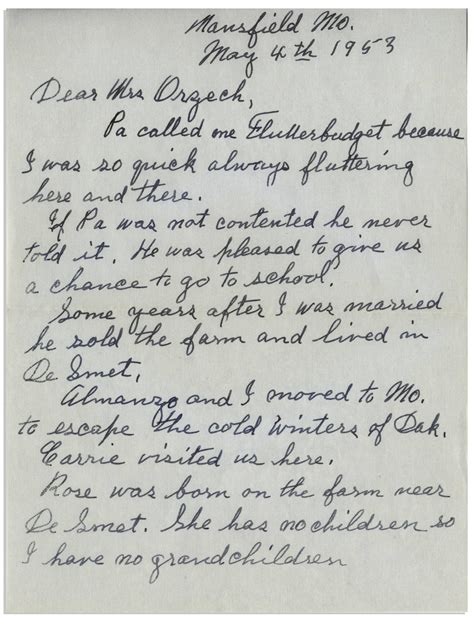 Mansfield Mo.
May 4th 1953
Dear Mrs Orzech,
Pa called me Flutterbudget because
I was so quick always fluttering
here and there.
If Pa was not contented he never
told it. He was pleased to give us
a chance to go to school.
Some years after I was married
he sold the farm and lived in
De Smet.
Almanzo and I moved to Mo.
to escape the cold winters of Dak.
Carrie visited us here.
Rose was born on the farm near
De Smet. She has no children so
I have no grandchildren